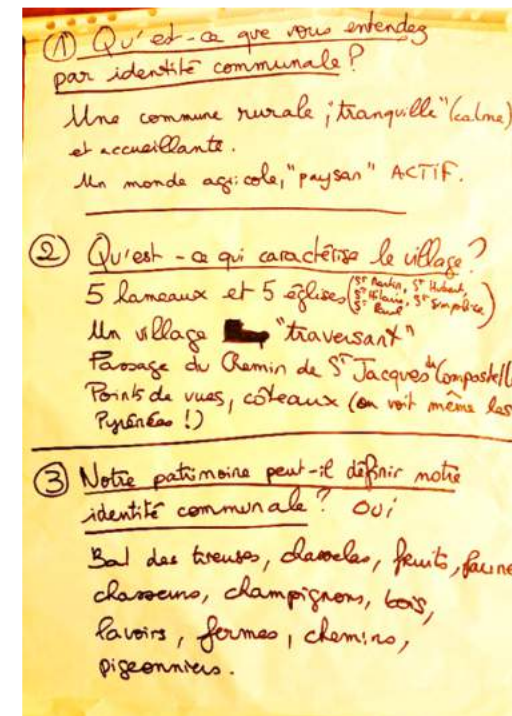 ① Qu'est-ce que vous entendez
par identité communale ?
Une commune rurale, "tranquille" (calme)
et accueillante.
Un monde agricole, "paysan" ACTIF.
② Qu'est-ce qui caractérise le village ?
5 hameaux et 5 églises (St Martin, St Hubert,
St Hilaire, St Simplice,
St Paul)
Un village "traversant"
Passage du Chemin de St Jacques de Compostell
Points de vues, côteaux (on voit même les
Pyrénées !)
③ Notre patrimoine peut-il définir notre
identité communale ? OUI
Bal des fruits, faune
chasseurs, champignons, bois,
lavoirs, fermes, chemins,
pigeonniers.